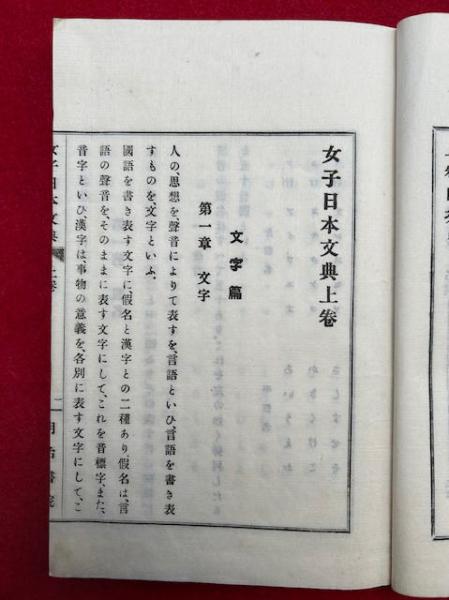 女子日本文典上卷
文字篇
第一章 文字
人の、思想を、聲音によりて表すを、言語といひ、言語を書き表
すものを、文字といふ。
國語を書き表す文字に、假名と漢字との二種あり、假名は、言
語の聲音を、そのままに表す文字にして、これを音標字、また、
音字といひ、漢字は、事物の意義を、各別に表す文字にして、こ
女子日本文典 上卷 一 明治書院